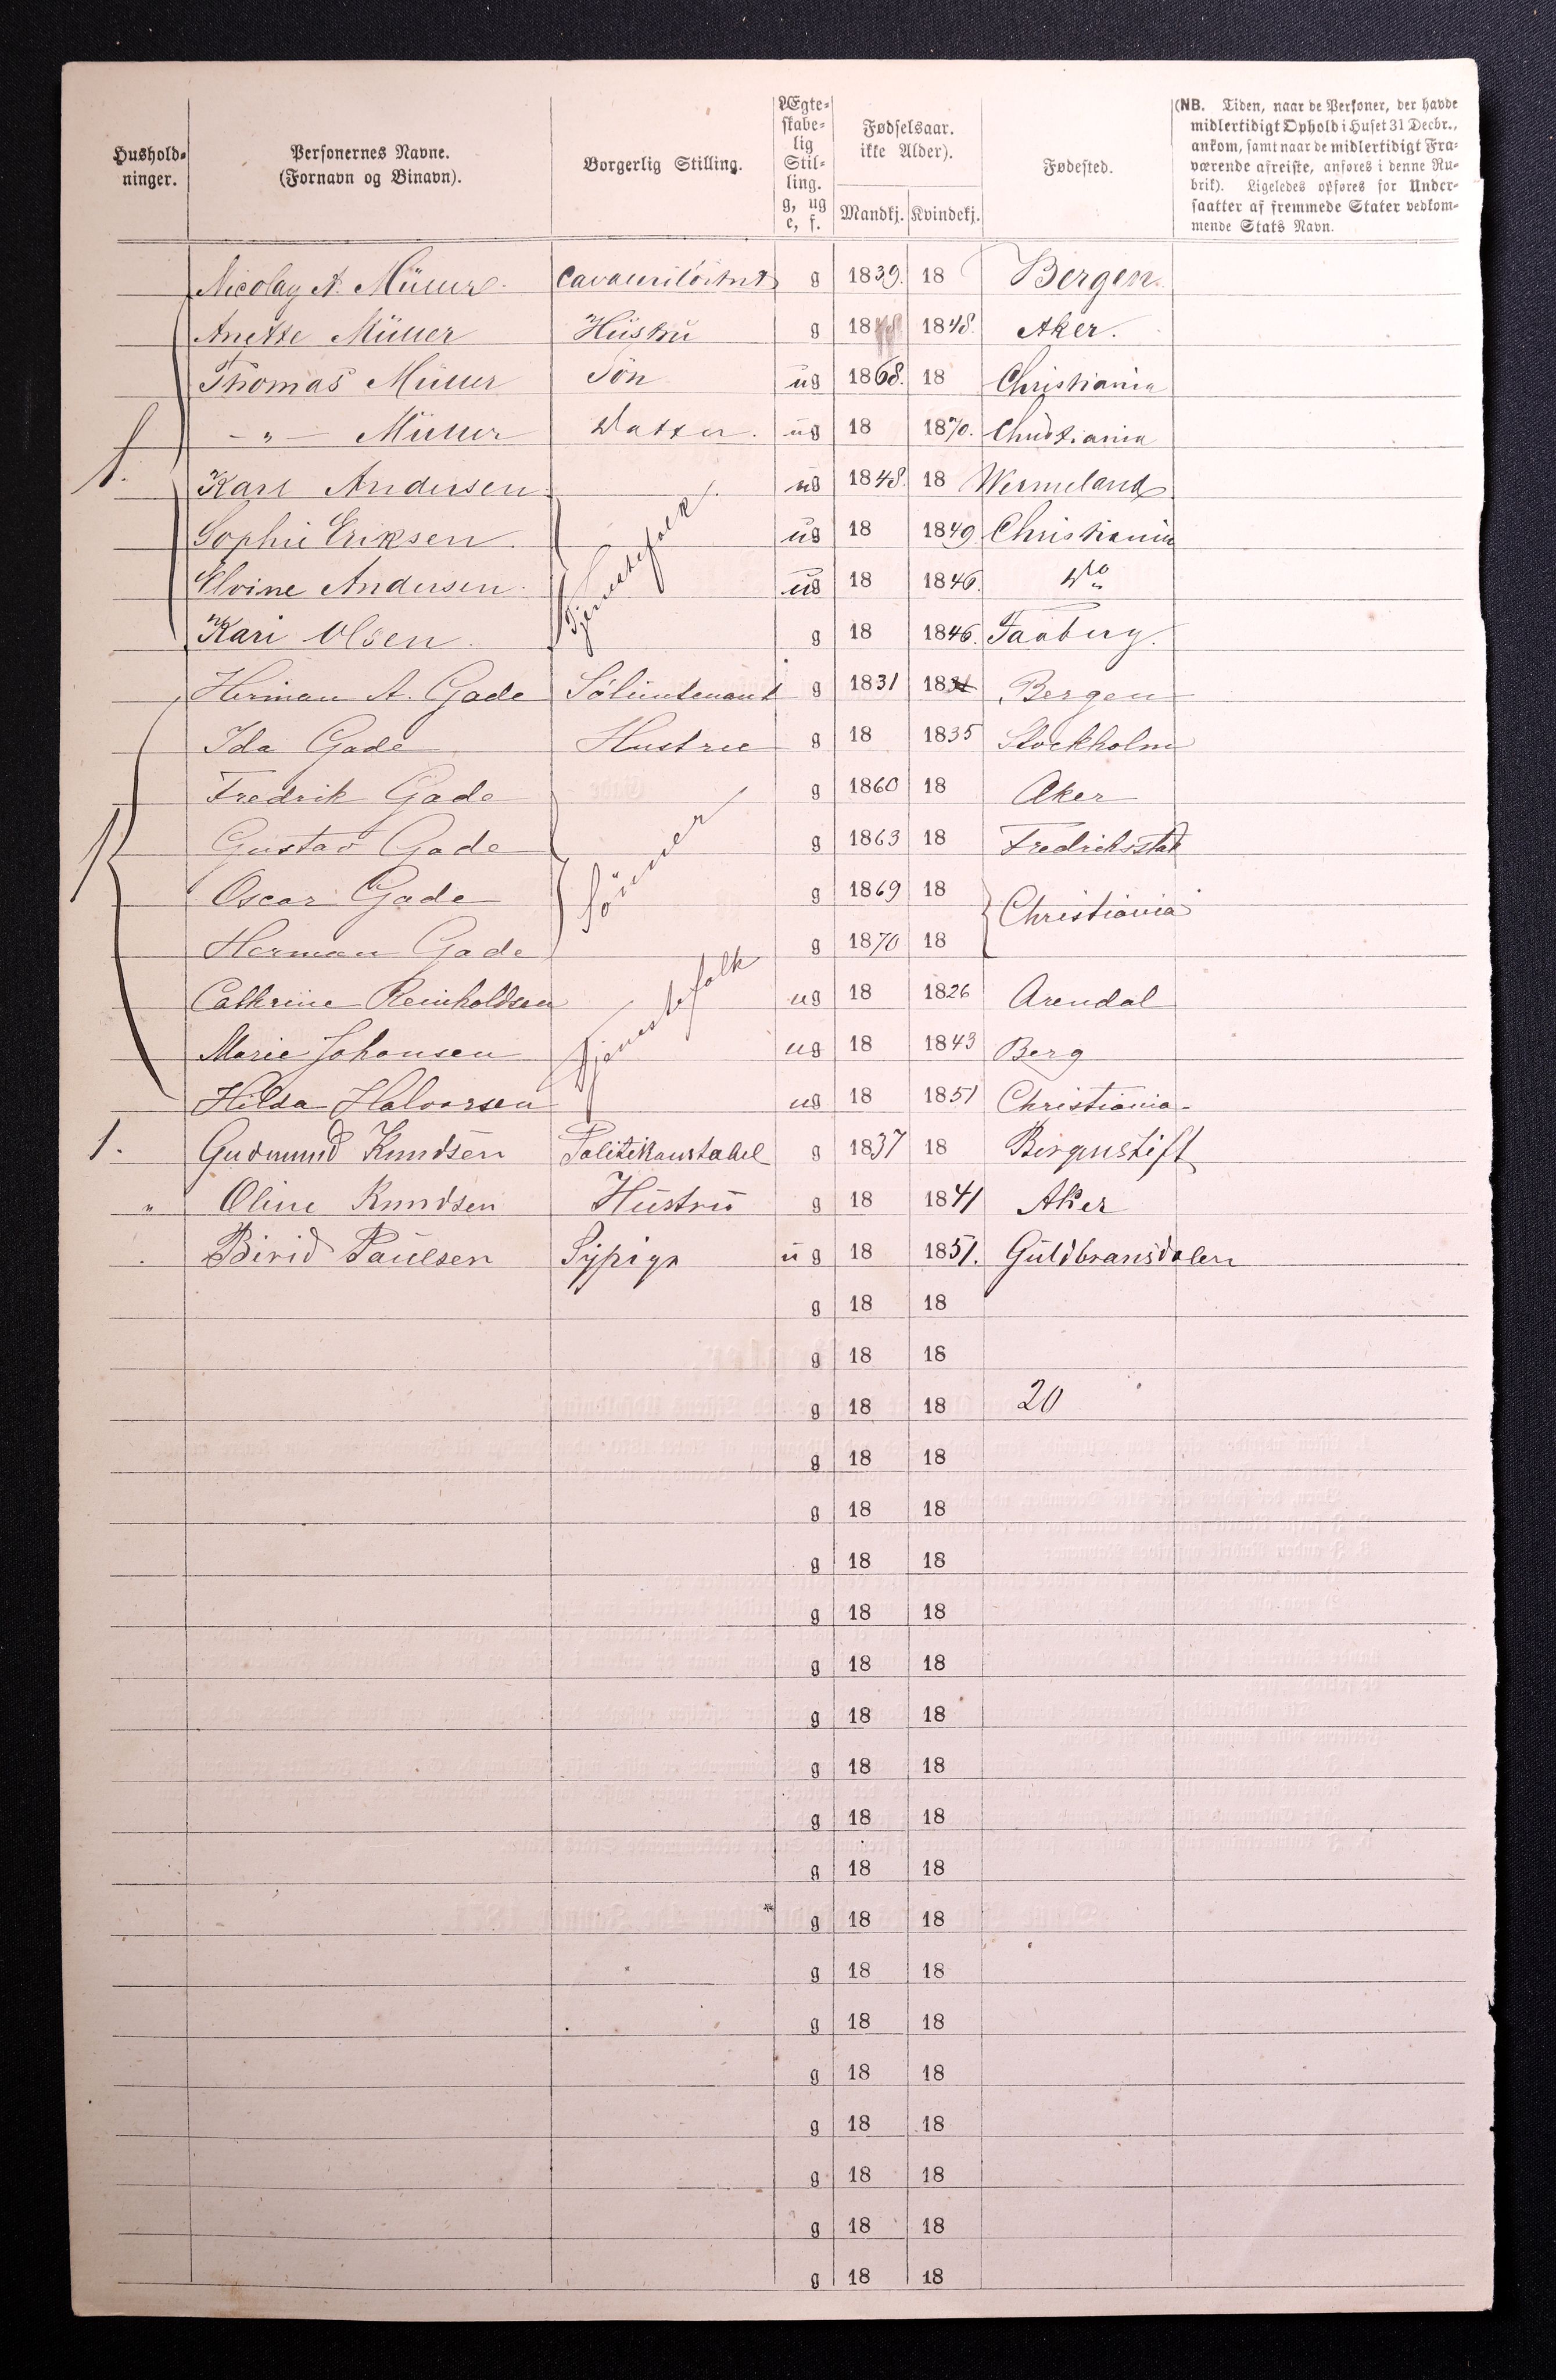 Hushold-
ninger.
Personernes Navne.
(Fornavn og Binavn).
Borgerlig Stilling.
Ægte-
skabe-
lig
Stil-
ling.
g, ug
e, f.
Fødselsaar.
ikke Alder).
Mandkj. Kvindekj.
Fødested.
(NB. Tiden, naar de Personer, der havde
midlertidigt Ophold i Huset 31 Decbr.,
ankom, samt naar de midlertidigt Fra-
værende afreiste, anføres i denne Ru-
brik). Ligeledes opføres for Under-
saatter af fremmede Stater vedkom-
mende Stats Navn.
Nicolay A. Müller g 1839. 18 Bergen.
Anette Müller Hustru g 18 1848. Aker.
Thomas Müller Sön ug 1868. 18 Christiania
- " - Müller Datter. ug 18 1870. Christiania
1.
Karl Andersen ug 1848. 18 Wermeland
Sophie Eriksen ug 18 1849 Christiania
Tjenestefolk.
Elvine Andersen ug 18 1846. Do
Kari Olsen g 18 1846. Faaberg.
Herman A. Gade Sølieutenant g 1831 18 Bergen
Ida Gade Hustrue g 18 1835 Stockholm
Fredrik Gade g 1860 18 Aker
1
Gustav Gade g 1863 18 Fredriksstad
Sönner
Oscar Gade g 1869 18 Christiania
Herman Gade g 1870 18
Cathrine Reinholdsen ug 18 1826 Arendal
Tjenestefolk
Marie Johansen ug 18 1843 Berg
Hilda Halvorsen ug 18 1851 Christiania
1. Gudmund Knudsen Politikonstabel g 1837 18 Bergenstift
" Oline Knudsen Hustru g 18 1841 Aker
Paulsen Sypige ug 18 1851. Guldbransdalen
g 18 18
g 18 18
g 18 18 20
g 18 18
g 18 18
g 18 18
g 18 18
g 18 18
g 18 18
g 18 18
g 18 18
g 18 18
g 18 18
g 18 18
g 18 18
g 18 18
g 18 18
g 18 18
g 18 18
g 18 18